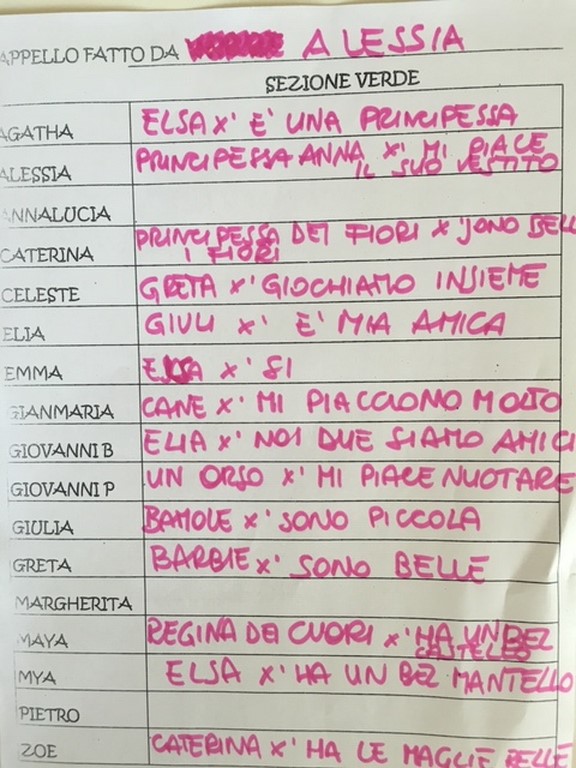 APPELLO FATTO DA ALESSIA
SEZIONE VERDE
AGATHA ELSA x' E' UNA PRINCIPESSA
ALESSIA PRINCIPESSA ANNA x' MI PIACE
IL SUO VESTITO
ANNALUCIA
CATERINA PRINCIPESSA DEI FIORI x' SONO BELL
I FIORI
CELESTE GRETA x' GIOCHIAMO INSIEME
ELIA GIULI x' E' MIA AMICA
EMMA ELSA x' SI
GIANMARIA CANE x' MI PIACCIONO MOLTO
GIOVANNI B ELIA x' NOI DUE SIAMO AMICI
GIOVANNI P UN ORSO x' MI PIACE NUOTARE
GIULIA BAMOLE x' SONO PICCOLA
GRETA BARBIE x' SONO BELLE
MARGHERITA
MAYA REGINA DEI CUORI x' HA UN BEL
CASTELLO
MYA ELSA x' HA UN BEL MANTELLO
PIETRO
ZOE CATERINA x' HA LE MAGLIE BELLE